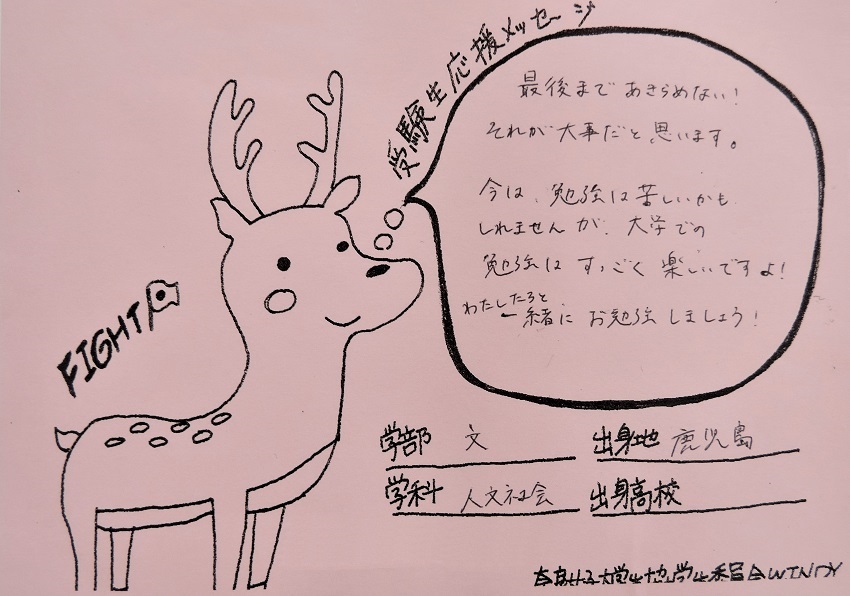 受験生応援メッセージ
最後まであきらめない!
それが大事だと思います。
今は、勉強は苦しいかも
しれませんが、大学での
勉強はすっごく楽しいですよ!
わたしたちと
一緒にお勉強しましょう!
FIGHT
学部 文
出身地 鹿児島
学科 人文社会
出身高校
奈良女子大学生協学生委員会WINDY